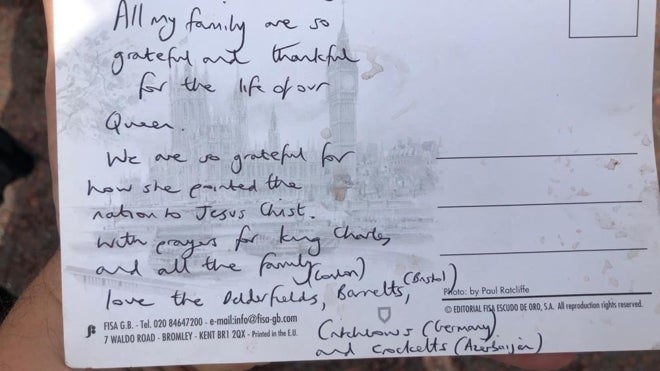 All my family are so
grateful and thankful
for the life of our
Queen.
We are so grateful for
how she pointed the
nation to Jesus Christ.
With prayers for King Charles
and all the family
(London)
love the Dolderfields, Barretts, (Bristol)
Critchlows (Germany)
and Crocketts (Azerbaijan)
Photo: by Paul Ratcliffe
© EDITORIAL FISA ESCUDO DE ORO, S.A. All reproduction rights reserved.
FISA G.B. - Tel. 020 84647200 - e-mail:info@fisa-gb.com
7 WALDO ROAD - BROMLEY - KENT BR1 2QX - Printed in the E.U.